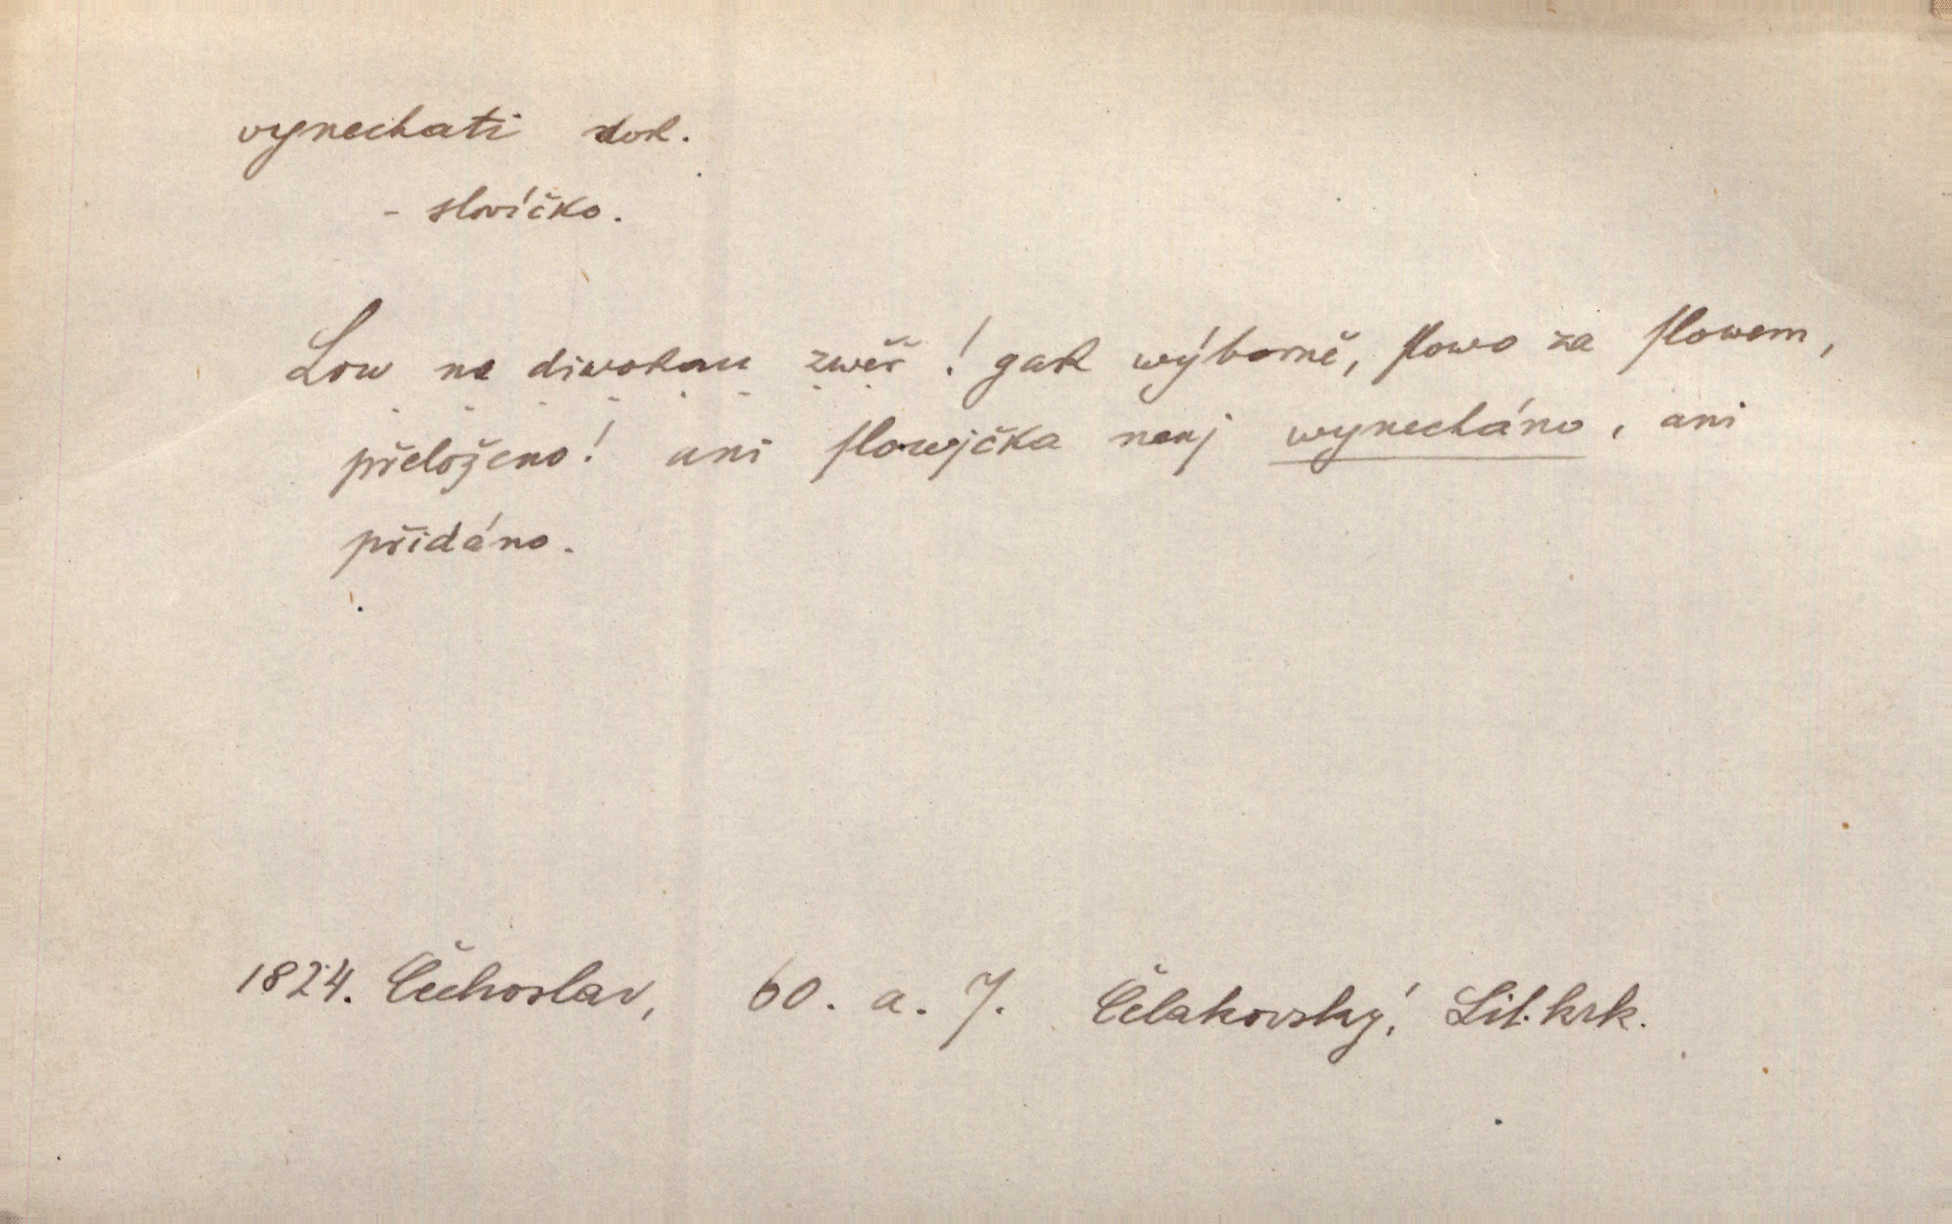 vynechati dok.
- slovíčko.
Low na diwokau zwěř! gak wýborně, slowo za slowem,
přeloženo! ani slowjčka nenj wynecháno, ani
přidáno.
1824. Čechoslav, 60. a. 7. Čelakovský, Lit. krk.